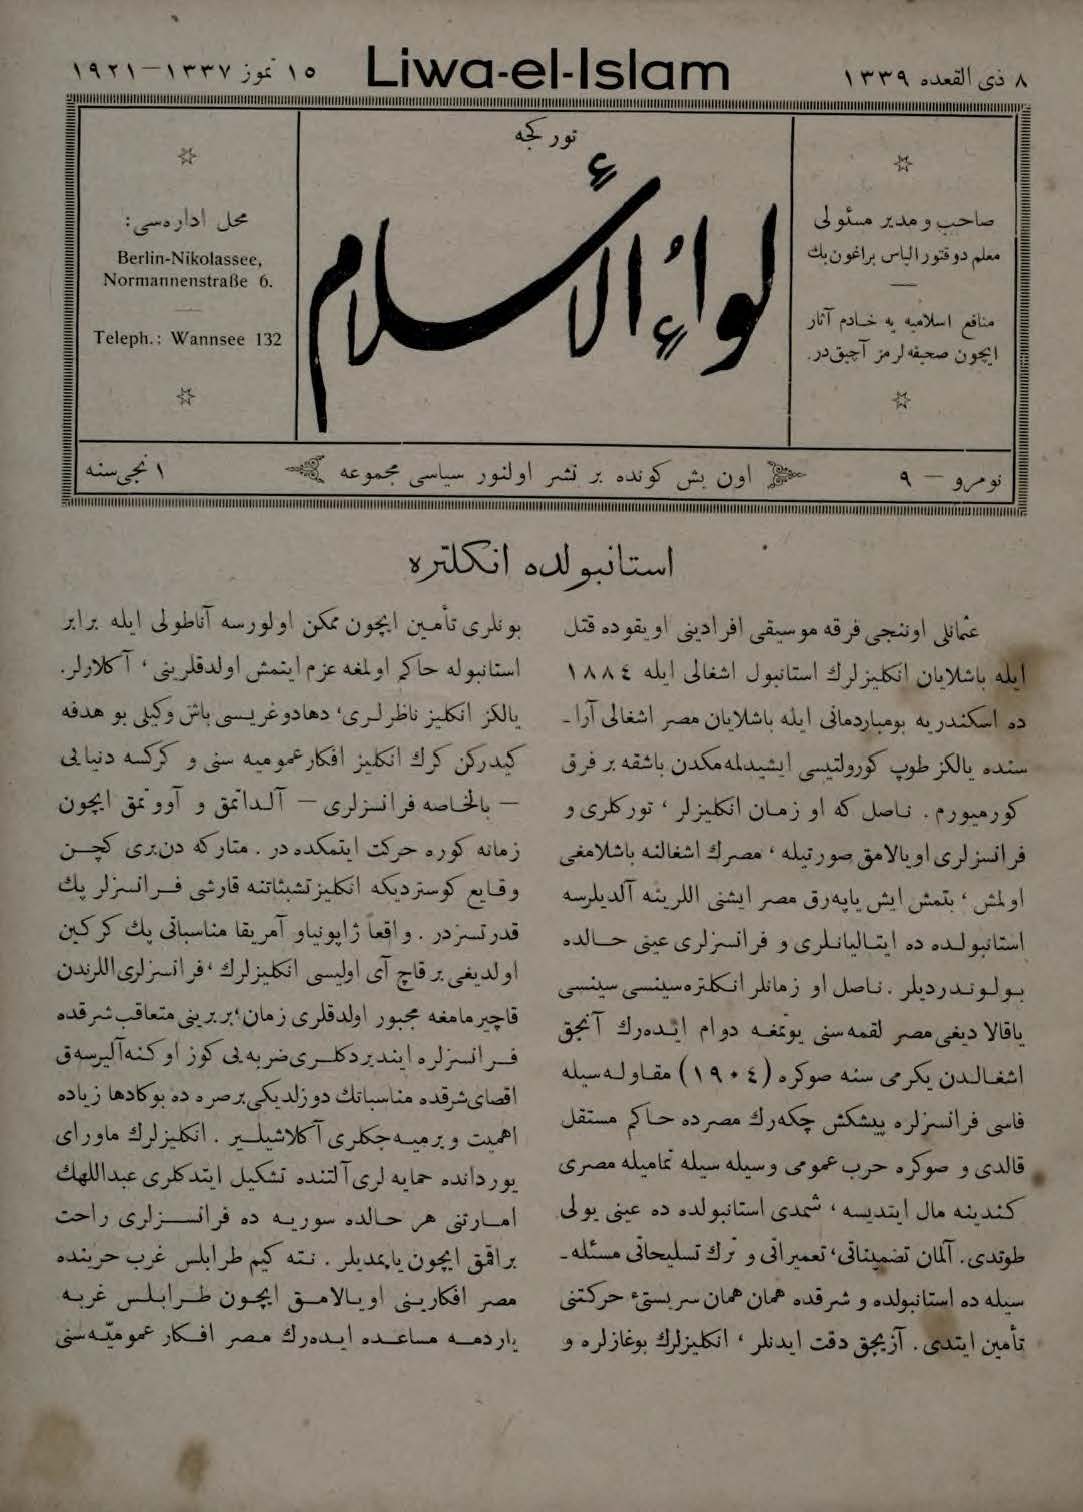 ٨ ذی القعده ١٣٣٩
Liwa-el-Islam
١٥ تموز ١٣٣٧—١٩٢١
صاحب و مدیر مسئولی
معلم دوقتور الیاس براغون بك
منافع اسلامیه یه خادم آثار
ایچون صحیفه لرمز آچیق در.
تورکجه
لواء الأسلام
محل اداره سی:
Berlin-Nikolassee,
Normannenstraße 6.
Teleph.: Wannsee 132
نومرو — ٩
اون بش کونده بر نشر اولنور سیاسی مجموعه
١ نجی سنه
استانبولده انکلتره
عثمانلی اوننجی فرقه موسیقی افرادینی اویقوده قتل
ایله باشلایان انکلیزلرك استانبول اشغالی ایله ١٨٨٤
ده اسکندریه بومباردمانی ایله باشلایان مصر اشغالی آرا-
سنده یالکز طوپ کورولتیسی ایشیدلمه مکدن باشقه بر فرق
کورمیورم. ناصل که او زمان انکلیزلر، تورکلری و
فرانسزلری اویالامق صورتیله، مصرك اشغالنه باشلامغی
اولمش، بتمش ایش یاپه رق مصر ایشنی اللرینه آلدیلرسه
استانبولده ده ایتالیانلری و فرانسزلری عینی حالده
بولوندردیلر. ناصل او زمانلر انکلتره سینسی سینسی
یاقالادیغی مصر لقمه سنی یوتمغه دوام ایده رك آنجق
اشغالدن یکرمی سنه صوکره (١٩٠٤) مقاوله سیله
فاسی فرانسزلره پیشکش چکه رك مصرده حاکم مستقل
قالدی و صوکره حرب عمومی وسیله سیله تمامیله مصری
کندینه مال ایتدیسه، شمدی استانبولده ده عینی یولی
طوتدی. آلمان تضمیناتی، تعمیراتی و ترك تسلیحاتی مسئله-
سیله ده استانبولده و شرقده همان همان سربستیء حرکتنی
تأمین ایتدی. آزیجق دقت ایدنلر، انکلیزلرك بوغازلره و
بونلری تأمین ایچون ممکن اولورسه آناطولی ایله برابر
استانبوله حاکم اولمغه عزم ایتمش اولدقلرینی، آکلارلر.
یالکز انکلیز ناظرلری، دهادوغریسی باش وکیلی بو هدفه
کیدرکن کرك انکلیز افکار عمومیه سنی و کرکسه دنیایی
— بالخاصه فرانسزلری — آلداتمق و آووتمق ایچون
زمانه کوره حرکت ایتمکده در. متارکه دن بری کچن
وقایع کوستردیکه انکلیز تشبثاتنه قارشی فرانسزلر پك
قدرتسزدر. واقعاً ژاپونیا و آمریقا مناسباتی پك کرکین
اولدیغی بر قاچ آی اولیسی انکلیزلرك، فرانسزلری اللرندن
قاچیرمامغه مجبور اولدقلری زمان، بربرینی متعاقب شرقده
فرانسزلره ایندیردکلری ضربه یی کوز اوکنه آلیرسه ق
اقصای شرقده مناسباتك دوزلدیکی بر صره ده بوکا دها زیاده
اهمیت ویرمیه جکلری آکلاشیلیر. انکلیزلرك ماورای
یوردانده حمایه لری آلتنده تشکیل ایتدکلری عبداللهك
امارتنی هر حالده سوریه ده فرانسزلری راحت
براقمق ایچون یاپمدیلر. نته کیم طرابلس غرب حربنده
مصر افکارینی اویالامق ایچون طرابلس غربه
یاردمه مساعده ایده رك مصر افکار عمومیّه سنی